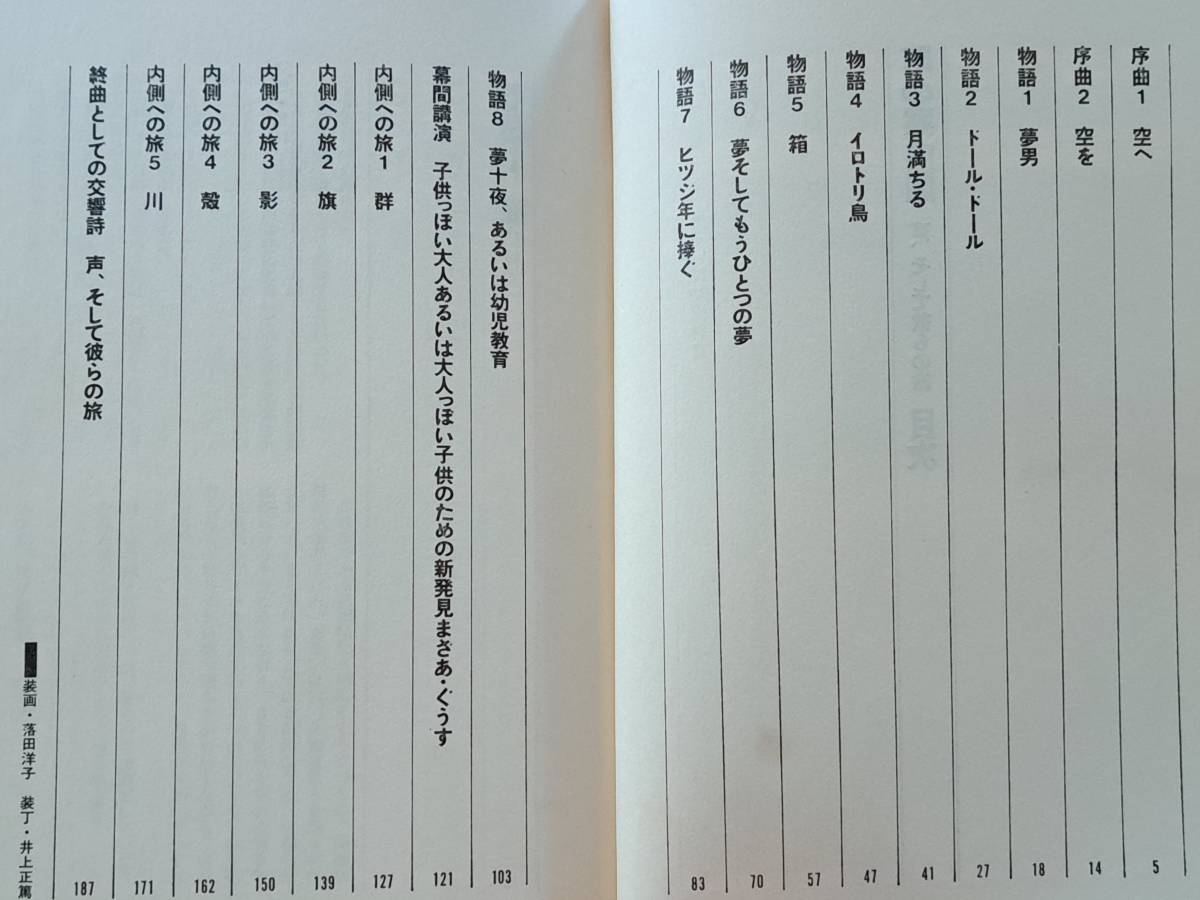 序曲1 空へ 5
序曲2 空を 14
物語1 夢男 18
物語2 ドール・ドール 27
物語3 月満ちる 41
物語4 イロトリ鳥 47
物語5 箱 57
物語6 夢そしてもうひとつの夢 70
物語7 ヒツジ年に捧ぐ 83
物語8 夢十夜、あるいは幼児教育 103
幕間講演 子供っぽい大人あるいは大人っぽい子供のための新発見まざあ・ぐうす 121
内側への旅1 群 127
内側への旅2 旗 139
内側への旅3 影 150
内側への旅4 殻 162
内側への旅5 川 171
終曲としての交響詩 声、そして彼らの旅 187
装画・落田洋子 装丁・井上正篤